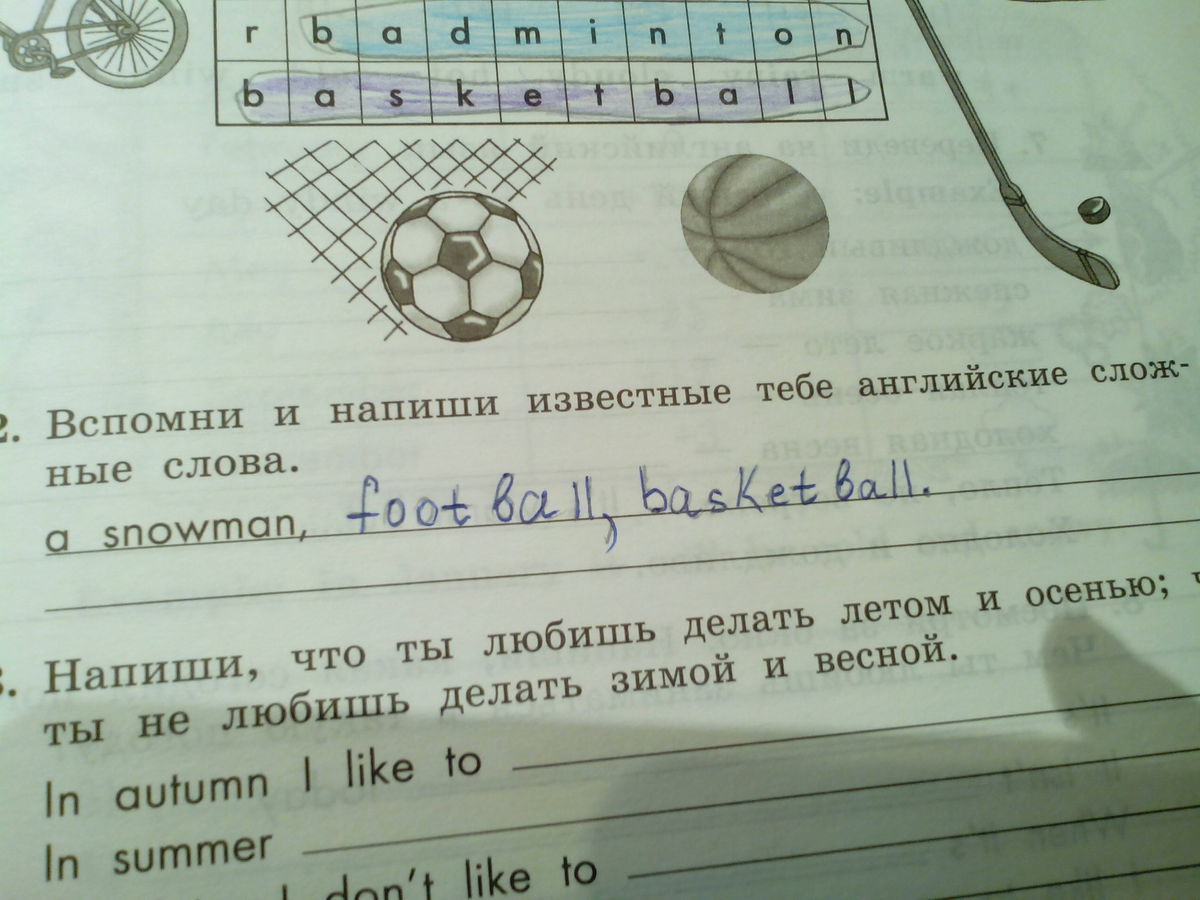 r b a d m i n t o n
b a s k e t b a l l
2. Вспомни и напиши известные тебе английские слож-
ные слова.
a snowman, football, basketball.
3. Напиши, что ты любишь делать летом и осенью;
ты не любишь делать зимой и весной.
In autumn I like to
In summer
I don't like to